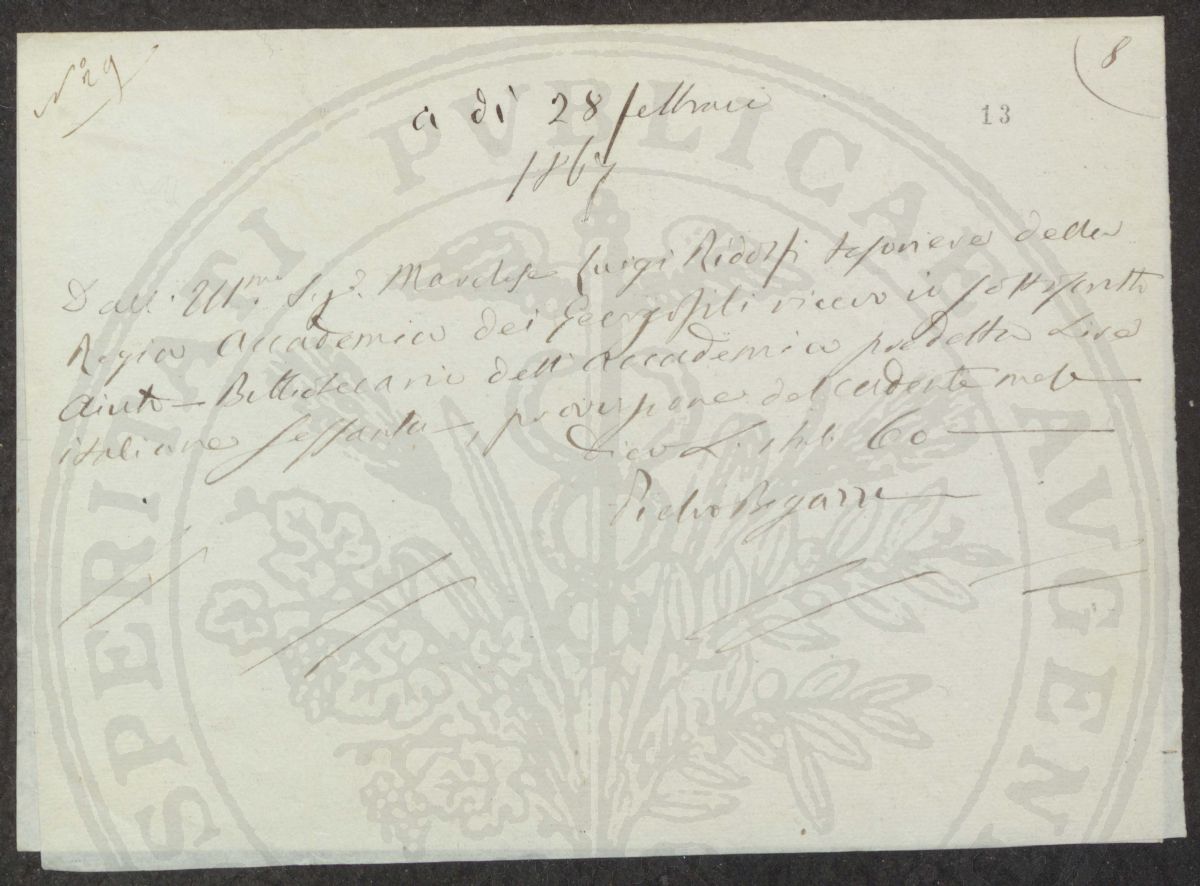 N.° 29
8
13
a dì 28 febbraio
1867
Dall' Ill.mo Sig.r Marchese Luigi Ridolfi Tesoriere della
Regia Accademia dei Georgofili ricevo io sottoscritto
Aiuto-Bibliotecario dell'Accademia predetta Lire
italiane sessanta, provvisione del cadente mese
Dico L. itali. 60
Pietro Bigazzi
PROSPERITATI PUBLICAE AUGEN